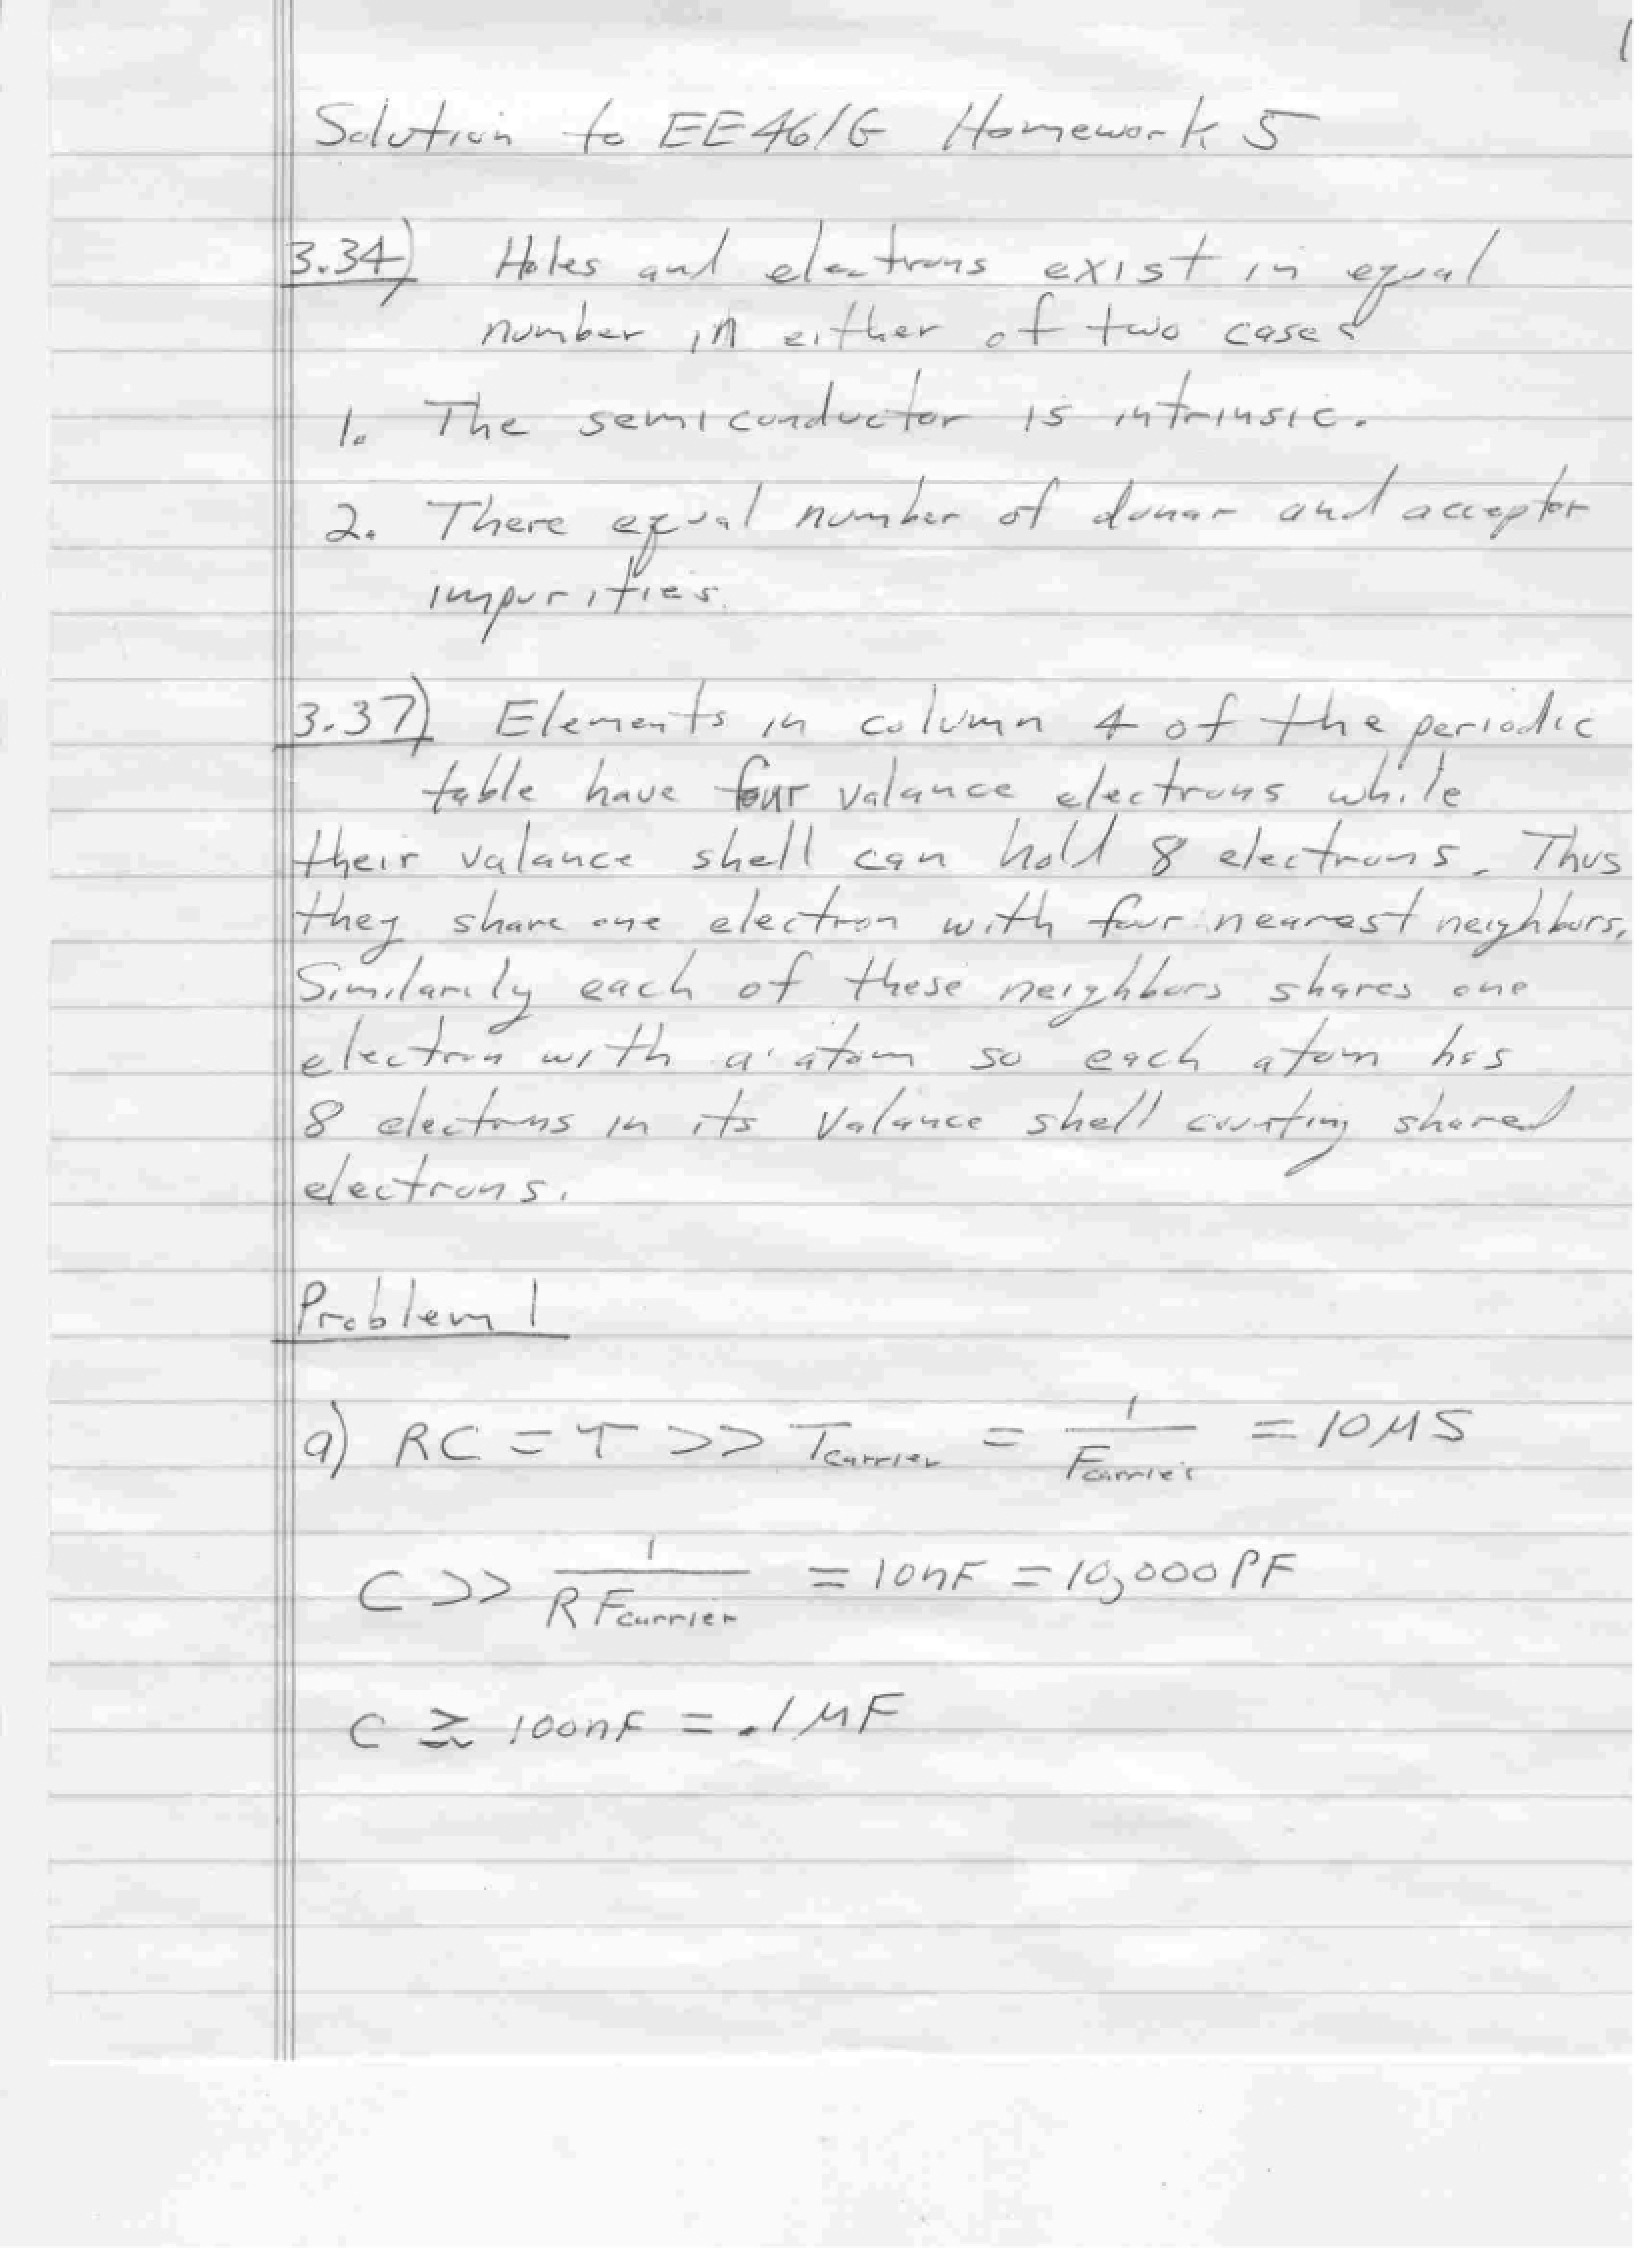 1
Solution to EE461G Homework 5
3.34) Holes and electrons exist in equal
number in either of two cases
1. The semiconductor is intrinsic.
2. There equal number of donar and acceptor
impurities.
3.37) Elements in column 4 of the periodic
table have four valance electrons while
their valance shell can hold 8 electrons. Thus
they share one electron with four nearest neighbors.
Similarily each of these neighbors shares one
electron with a atom so each atom has
8 electrons in its valance shell counting shared
electrons.
Problem 1
a) RC = τ >> Tcarrier = 1/Fcarrier = 10 μS
C >> 1/(R Fcarrier) = 10nF = 10,000 PF
C ≳ 100nF = .1 μF